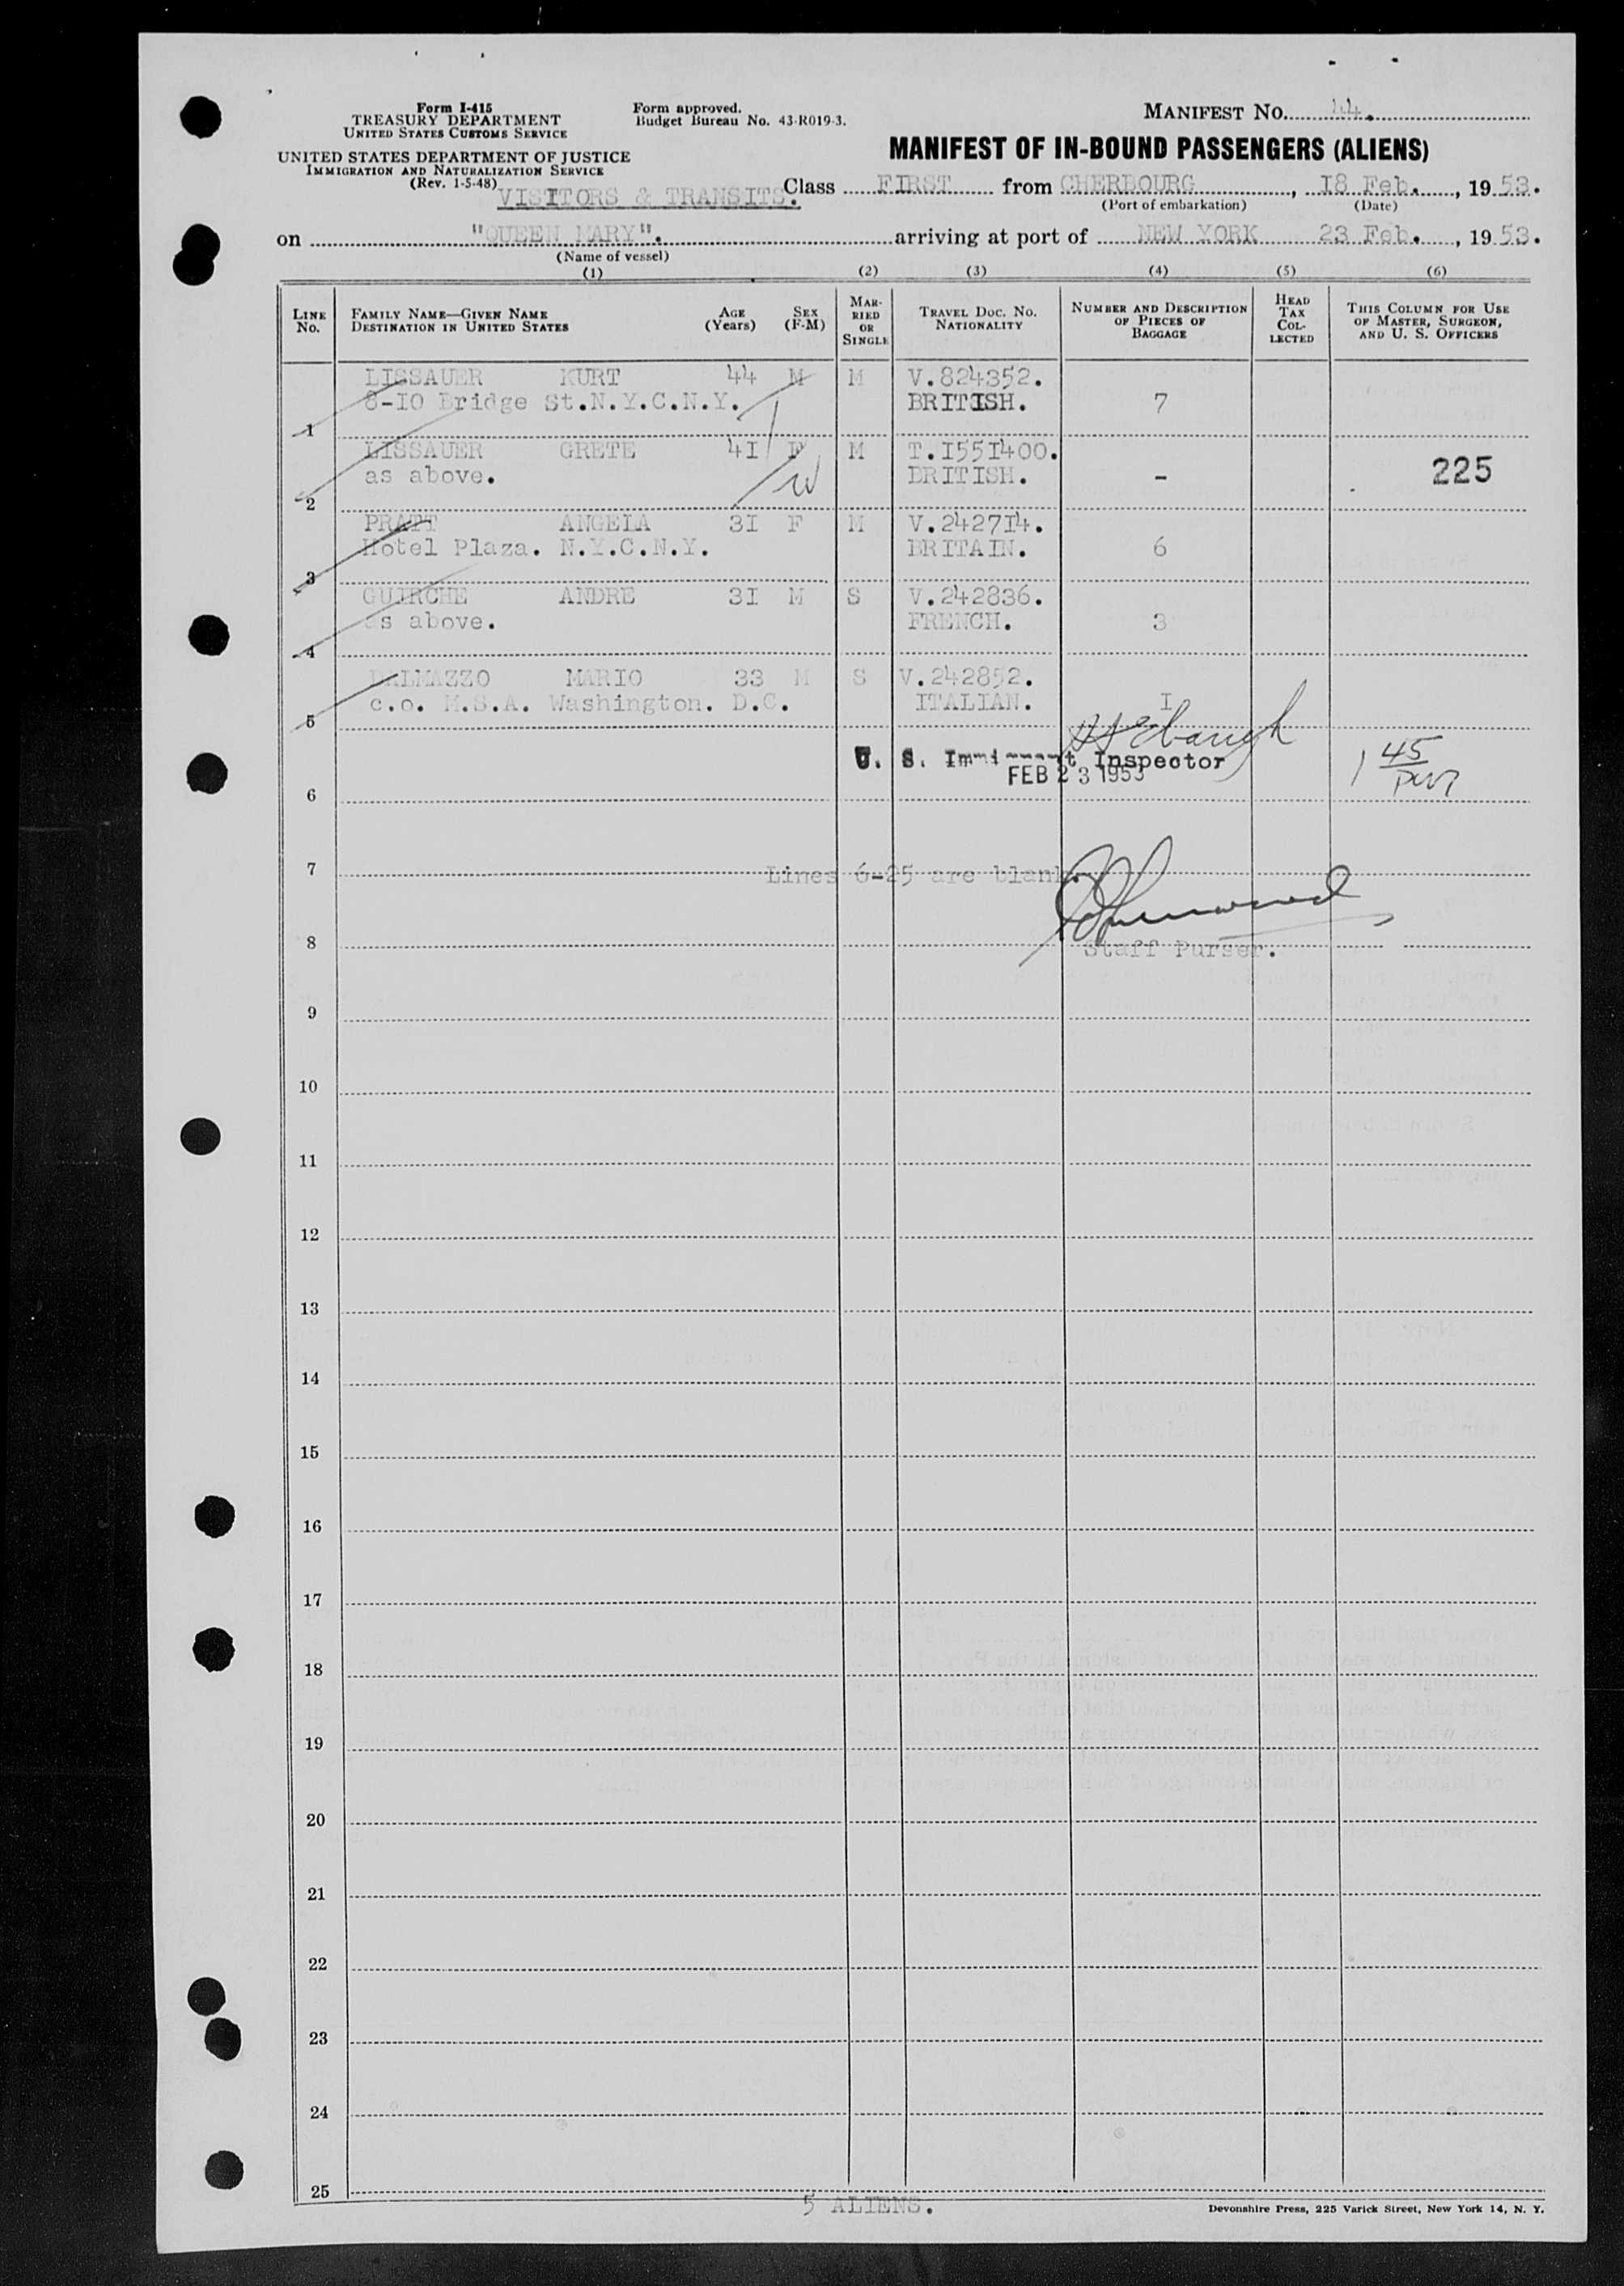 Form I-415
TREASURY DEPARTMENT
UNITED STATES CUSTOMS SERVICE
UNITED STATES DEPARTMENT OF JUSTICE
IMMIGRATION AND NATURALIZATION SERVICE
(Rev. 1-5-48)
Form approved.
Budget Bureau No. 43-R019-3.
MANIFEST NO. 44.
MANIFEST OF IN-BOUND PASSENGERS (ALIENS)
VISITORS & TRANSITS. Class FIRST from CHERBOURG, I8 Feb., 1953.
(Port of embarkation) (Date)
on "QUEEN MARY". arriving at port of NEW YORK 23 Feb., 1953.
(Name of vessel)
(1) (2) (3) (4) (5) (6)
LINE No. FAMILY NAME—GIVEN NAME DESTINATION IN UNITED STATES AGE (Years) SEX (F-M) MARRIED OR SINGLE TRAVEL DOC. NO. NATIONALITY NUMBER AND DESCRIPTION OF PIECES OF BAGGAGE HEAD TAX COLLECTED THIS COLUMN FOR USE OF MASTER, SURGEON, AND U. S. OFFICERS
LISSAUER KURT 44 M M V.824352.
8-IO Bridge St.N.Y.C.N.Y. BRITISH. 7
1
LISSAUER GRETE 4I F M T.I55I400.
as above. BRITISH. - 225
2
PRATT ANGELA 3I F M V.2427I4.
Hotel Plaza. N.Y.C.N.Y. BRITAIN. 6
3
GUIRCHE ANDRE 3I M S V.242836.
as above. FRENCH. 3
4
DALMAZZO MARIO 33 M S V.242852.
c.o. M.S.A. Washington. D.C. ITALIAN. I
5
U. S. Immigrant Inspector
FEB 23 1953
1 45
6
7
Lines 6-25 are blank.
8
Staff Purser.
9
10
11
12
13
14
15
16
17
18
19
20
21
22
23
24
25
5 ALIENS.
Devonshire Press, 225 Varick Street, New York 14, N. Y.